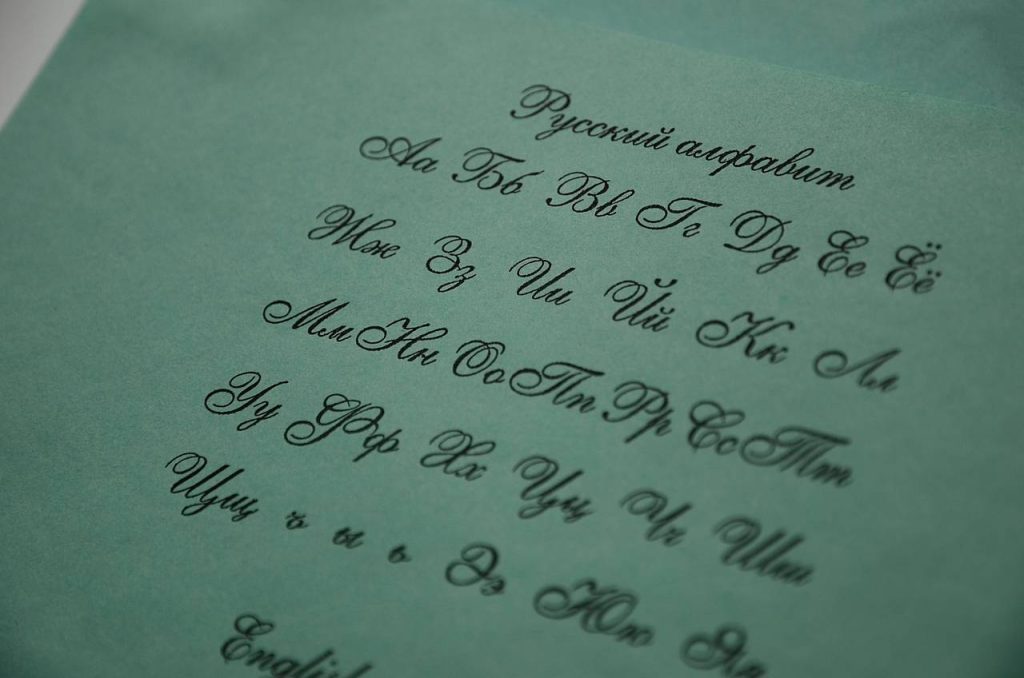 Русский алфавит
Аа Бб Вв Гг Дд Ее Ёё
Жж Зз Ии Йй Кк Лл
Мм Нн Оо Пп Рр Сс Тт
Уу Фф Хх Цц Чч Шш
Щщ ъ ы ь Ээ Юю Яя
English